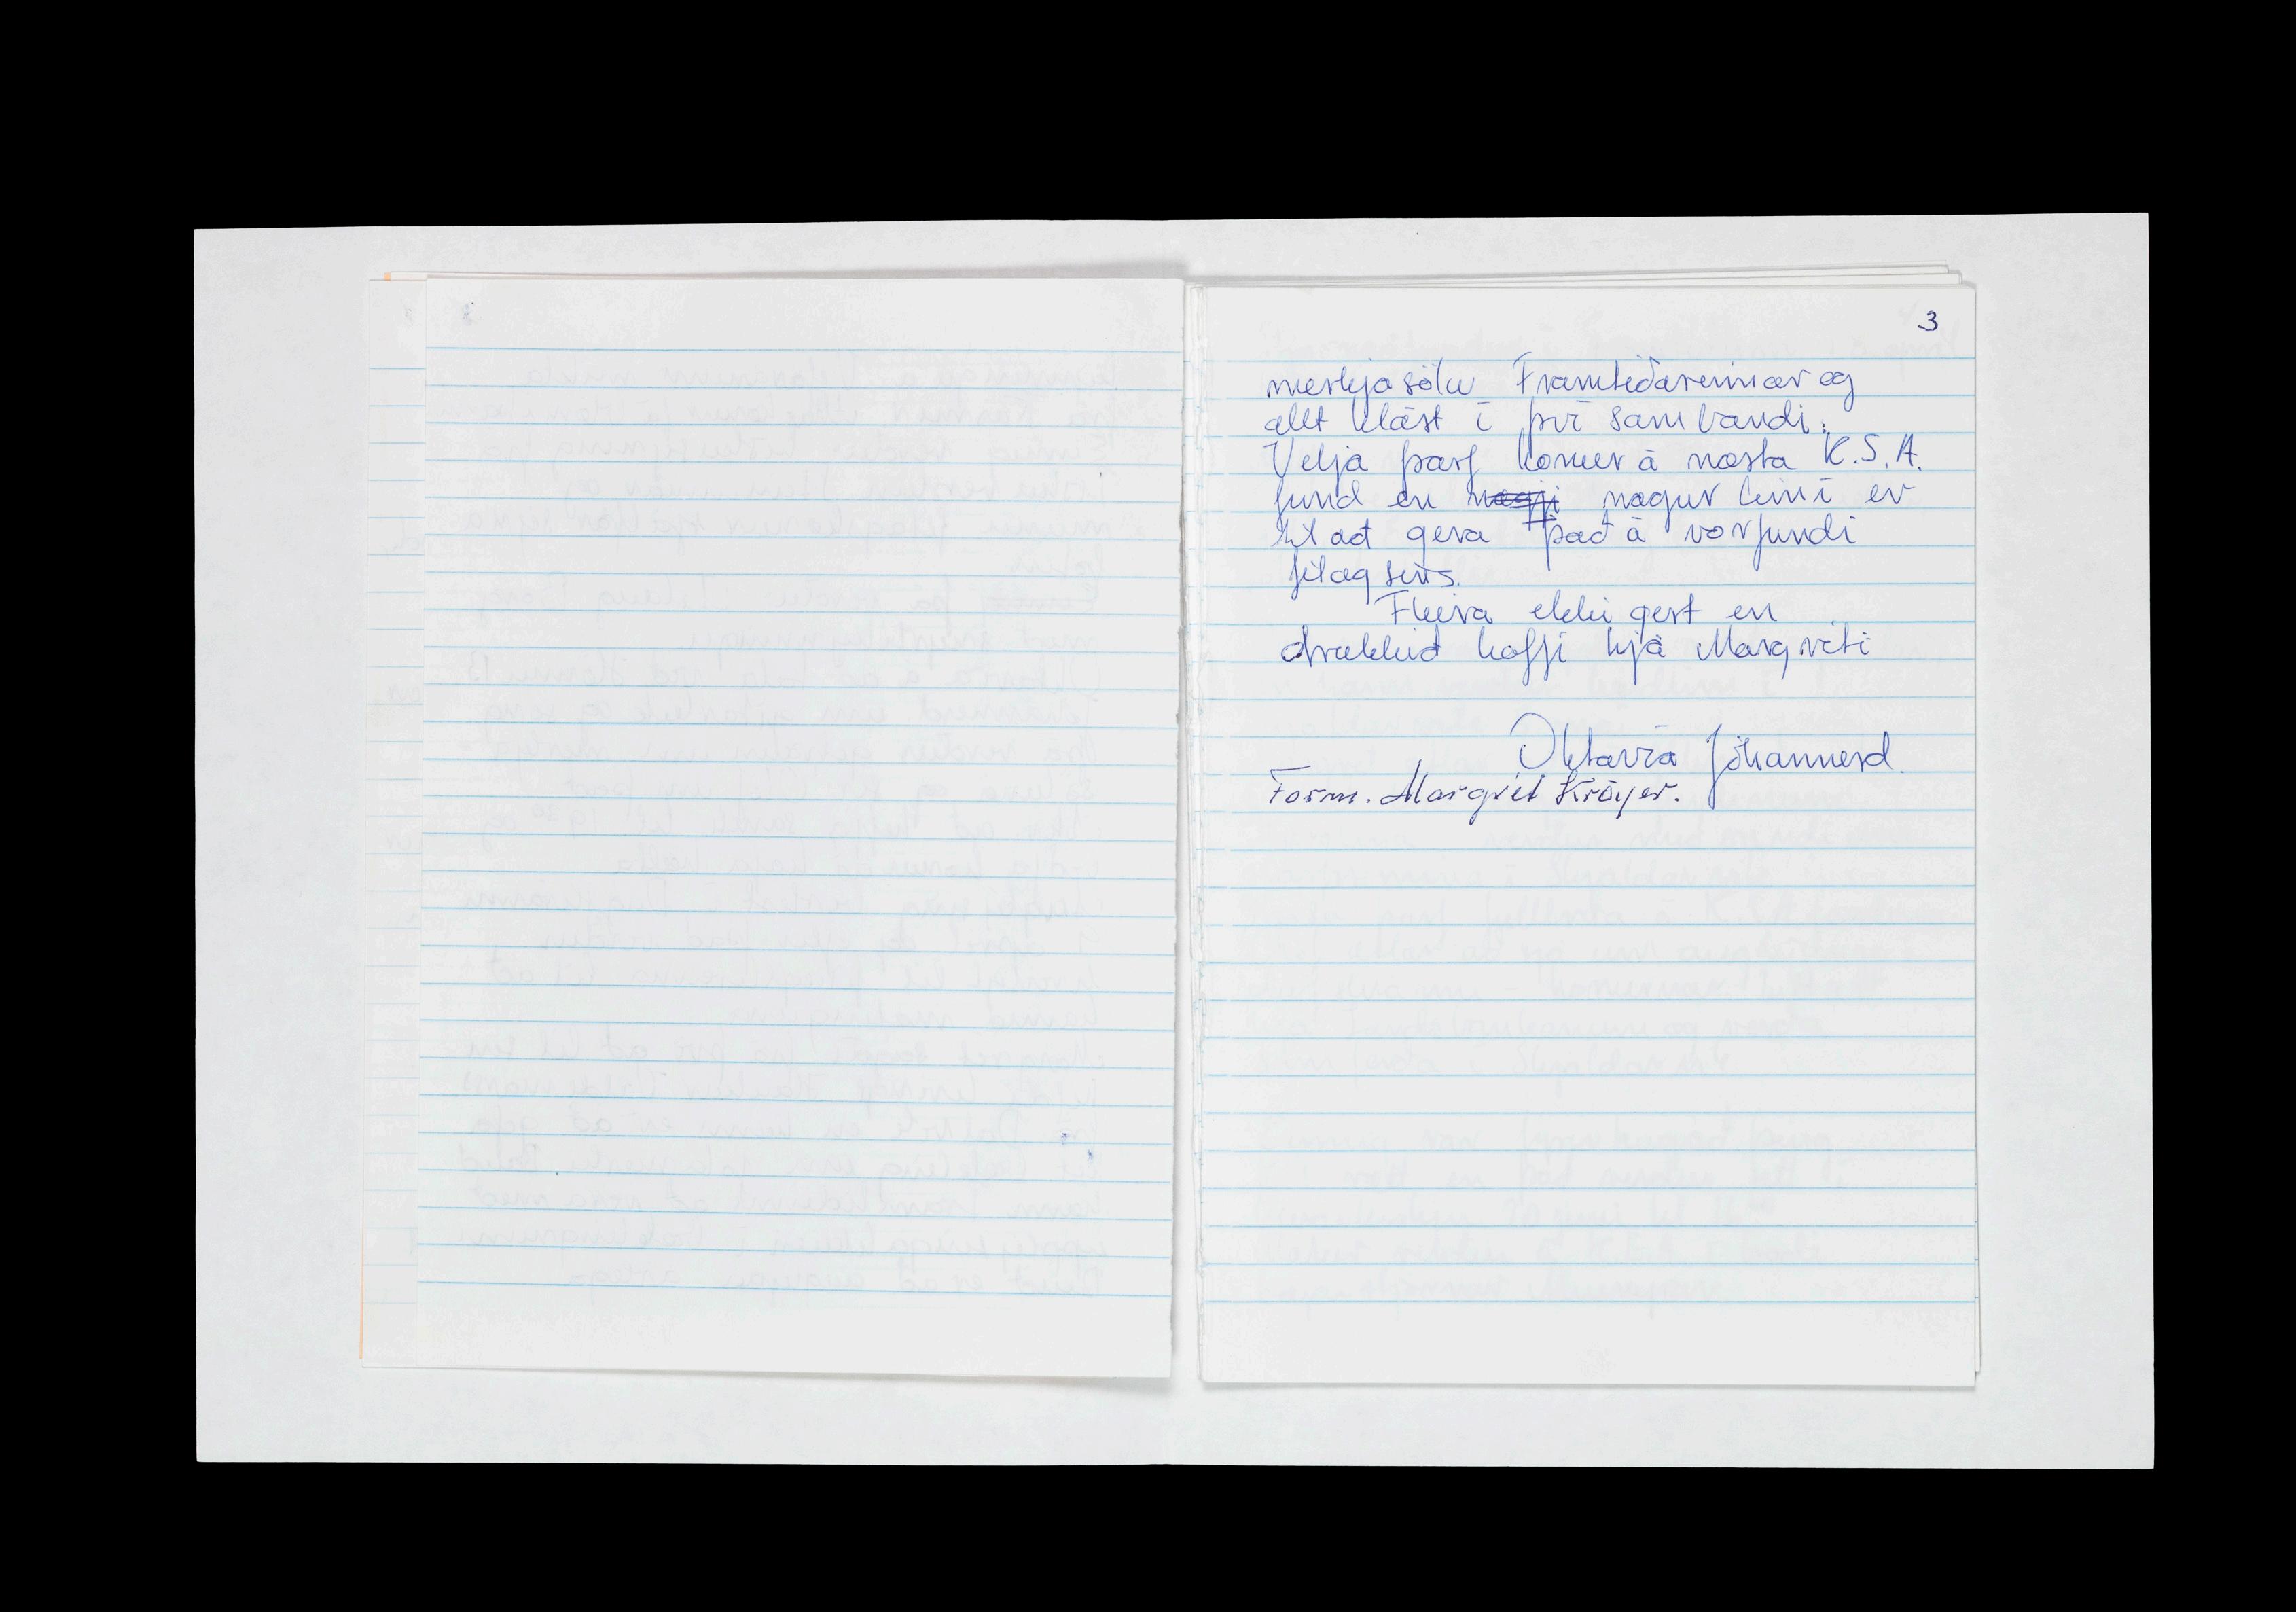 3
merkjasölu Framtíðarinnar og
allt klást í því sambandi.
Velja þarf konur á næsta K.S.A.
fund en nægur tími er
til að gera það á vorfundi
félagsins.
Fleira ekki gert en
drukkið kaffi hjá Margréti
Oktavía Jóhannesd.
Form. Margrét Kröyer.